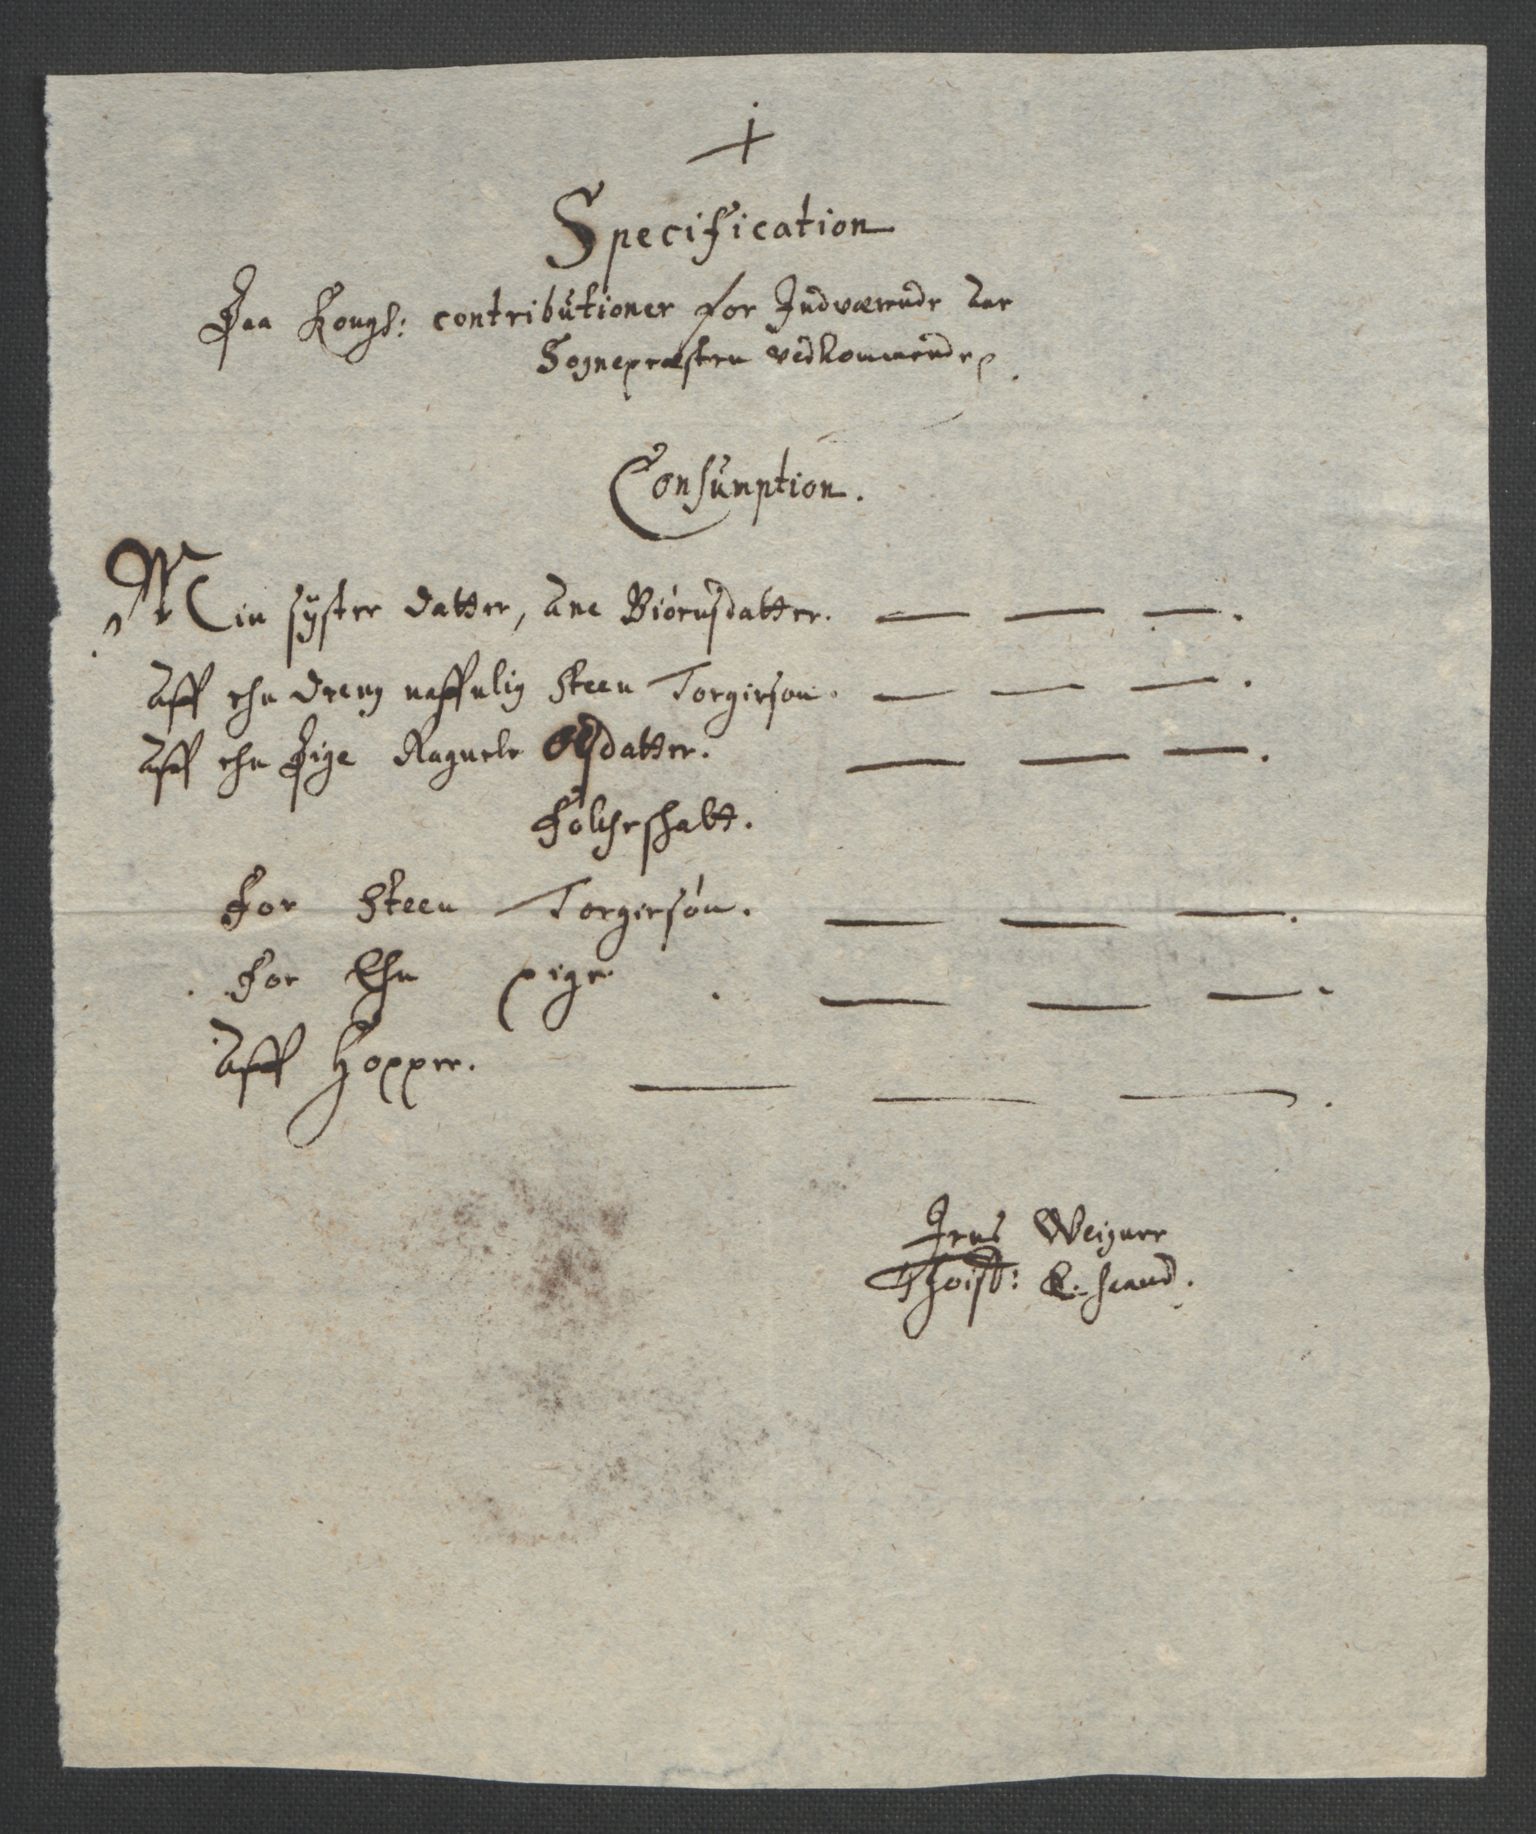 +
Specification
Paa Kongl: contributioner for Indværende Aar
Sognepræsten vedkommende.
Consumption.
Min syster datter, Ane Biörnsdatter. — — —.
Aff ehn dreng naffnlig Steen Torgirson. — — —.
Aff ehn Pige Ragnele Olsdatter. — — —.
Folcheschatt.
For Steen Torgirsön. — — —.
For Ehn pige. — — —.
Aff Hopper. — — —.
Jens Weigner